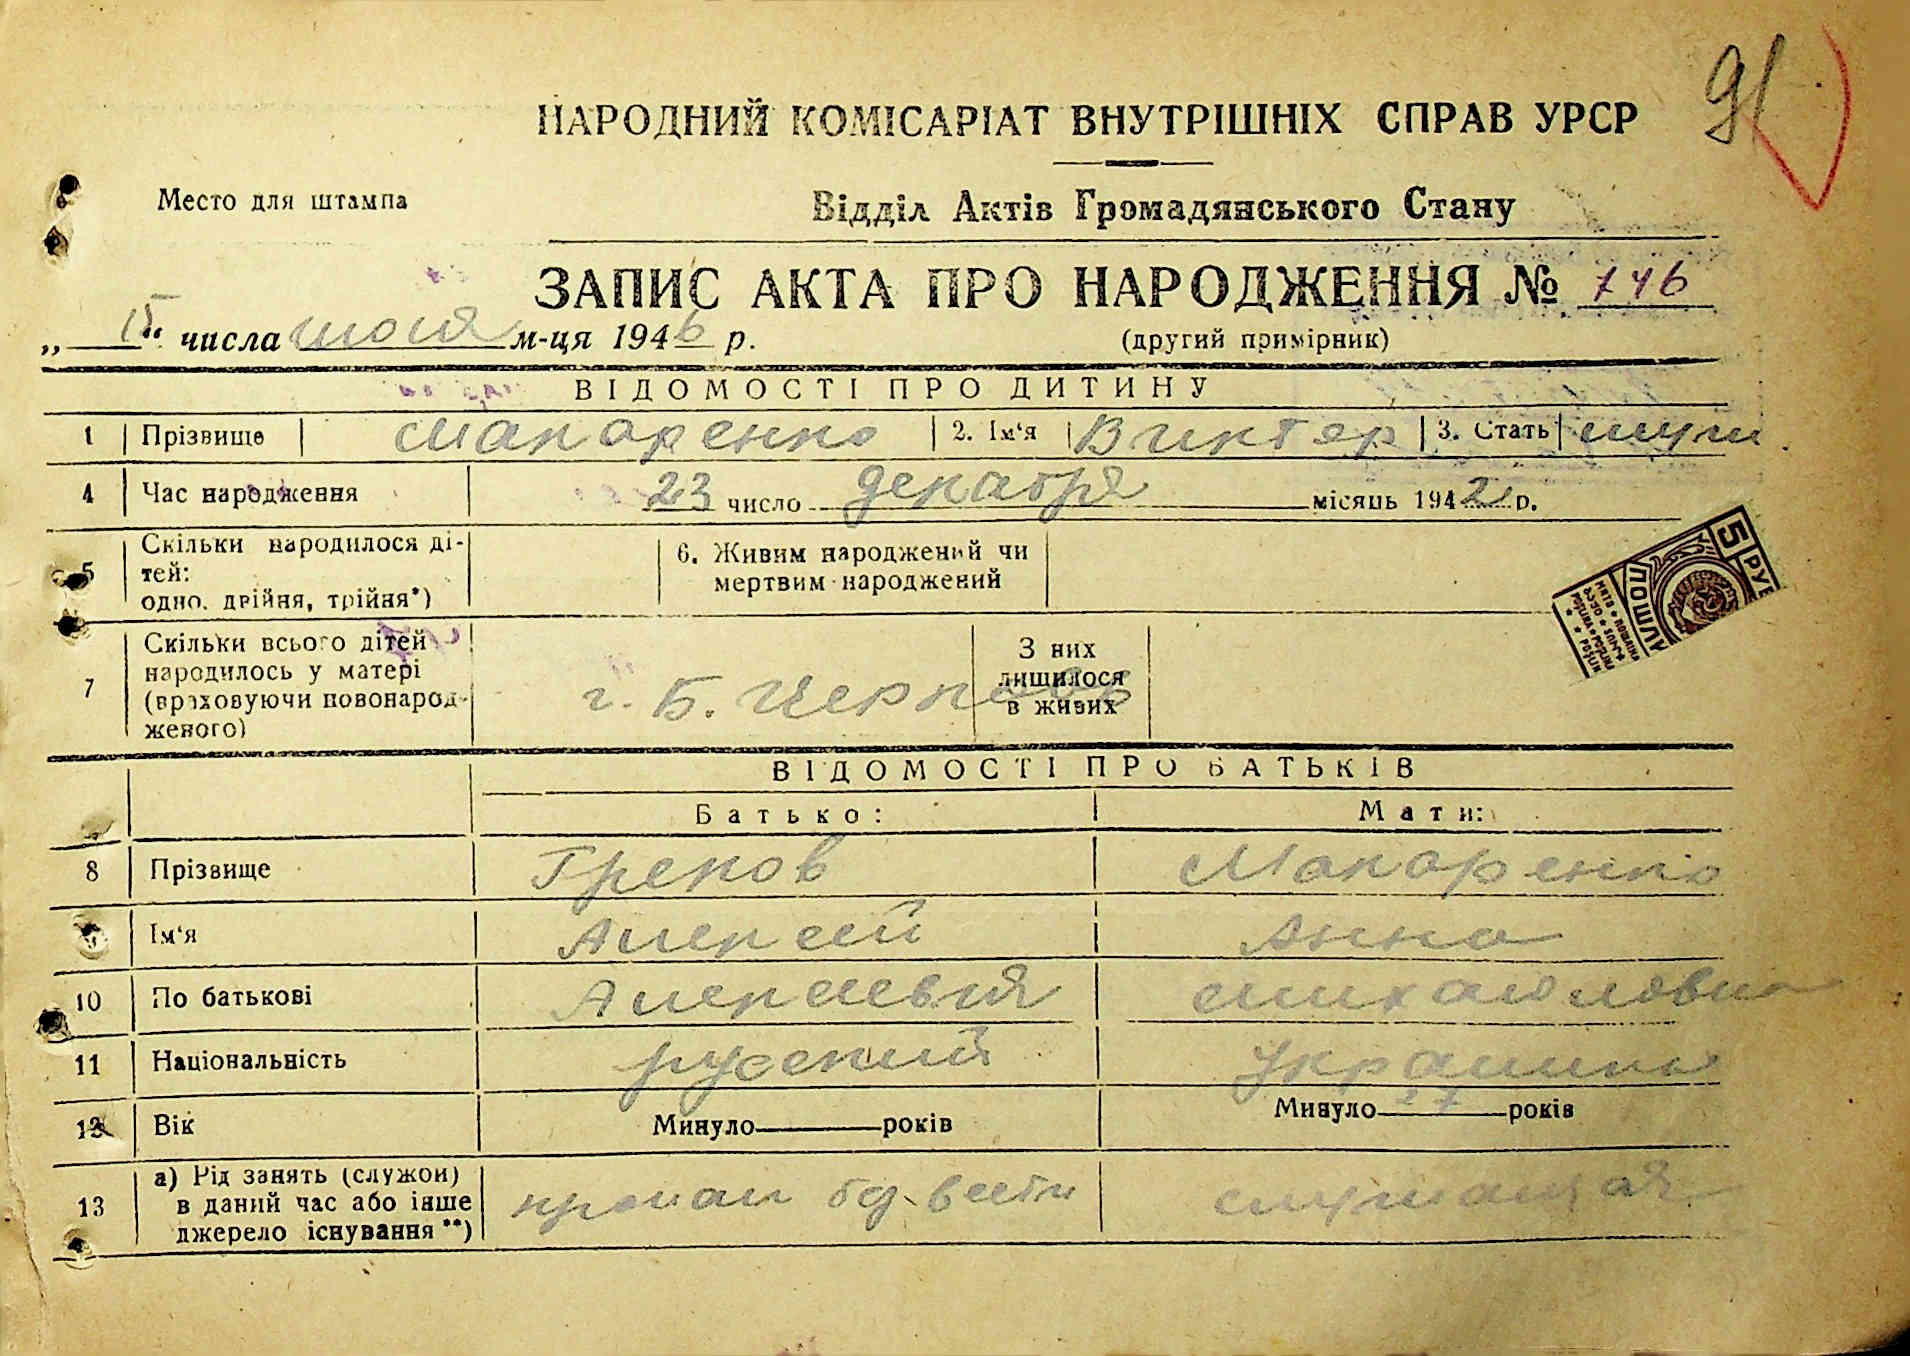 91
НАРОДНИЙ КОМІСАРІАТ ВНУТРІШНІХ СПРАВ УРСР
Место для штампа
Відділ Актів Громадянського Стану
ЗАПИС АКТА ПРО НАРОДЖЕННЯ № 746
„ 15 “ числа июля м-ця 1946 р.
(другий примірник)
ВІДОМОСТІ ПРО ДИТИНУ
1 Прізвище Макаренко 2. Ім‘я Виктор 3. Стать муж.
4 Час народження 23 число декабря місяць 1942 р.
5 Скільки народилося ді-
тей:
одно, двійня, трійня*)
6. Живим народжений чи
мертвим народжений
7 Скільки всього дітей
народилось у матері
(враховуючи новонарод-
женого)
г. Б. Церковь
З них
лишилося
в живих
5 РУБ
ПОШЛИ
ВІДОМОСТІ ПРО БАТЬКІВ
Батько: Мати:
8 Прізвище Греков Макаренко
9 Ім‘я Алексей Анна
10 По батькові Алексеевич Михайловна
11 Національність русский Украинка
12 Вік Минуло років Минуло 27 років
13 а) Рід занять (служби)
в даний час або інше
джерело існування**)
пропал без вести служащая